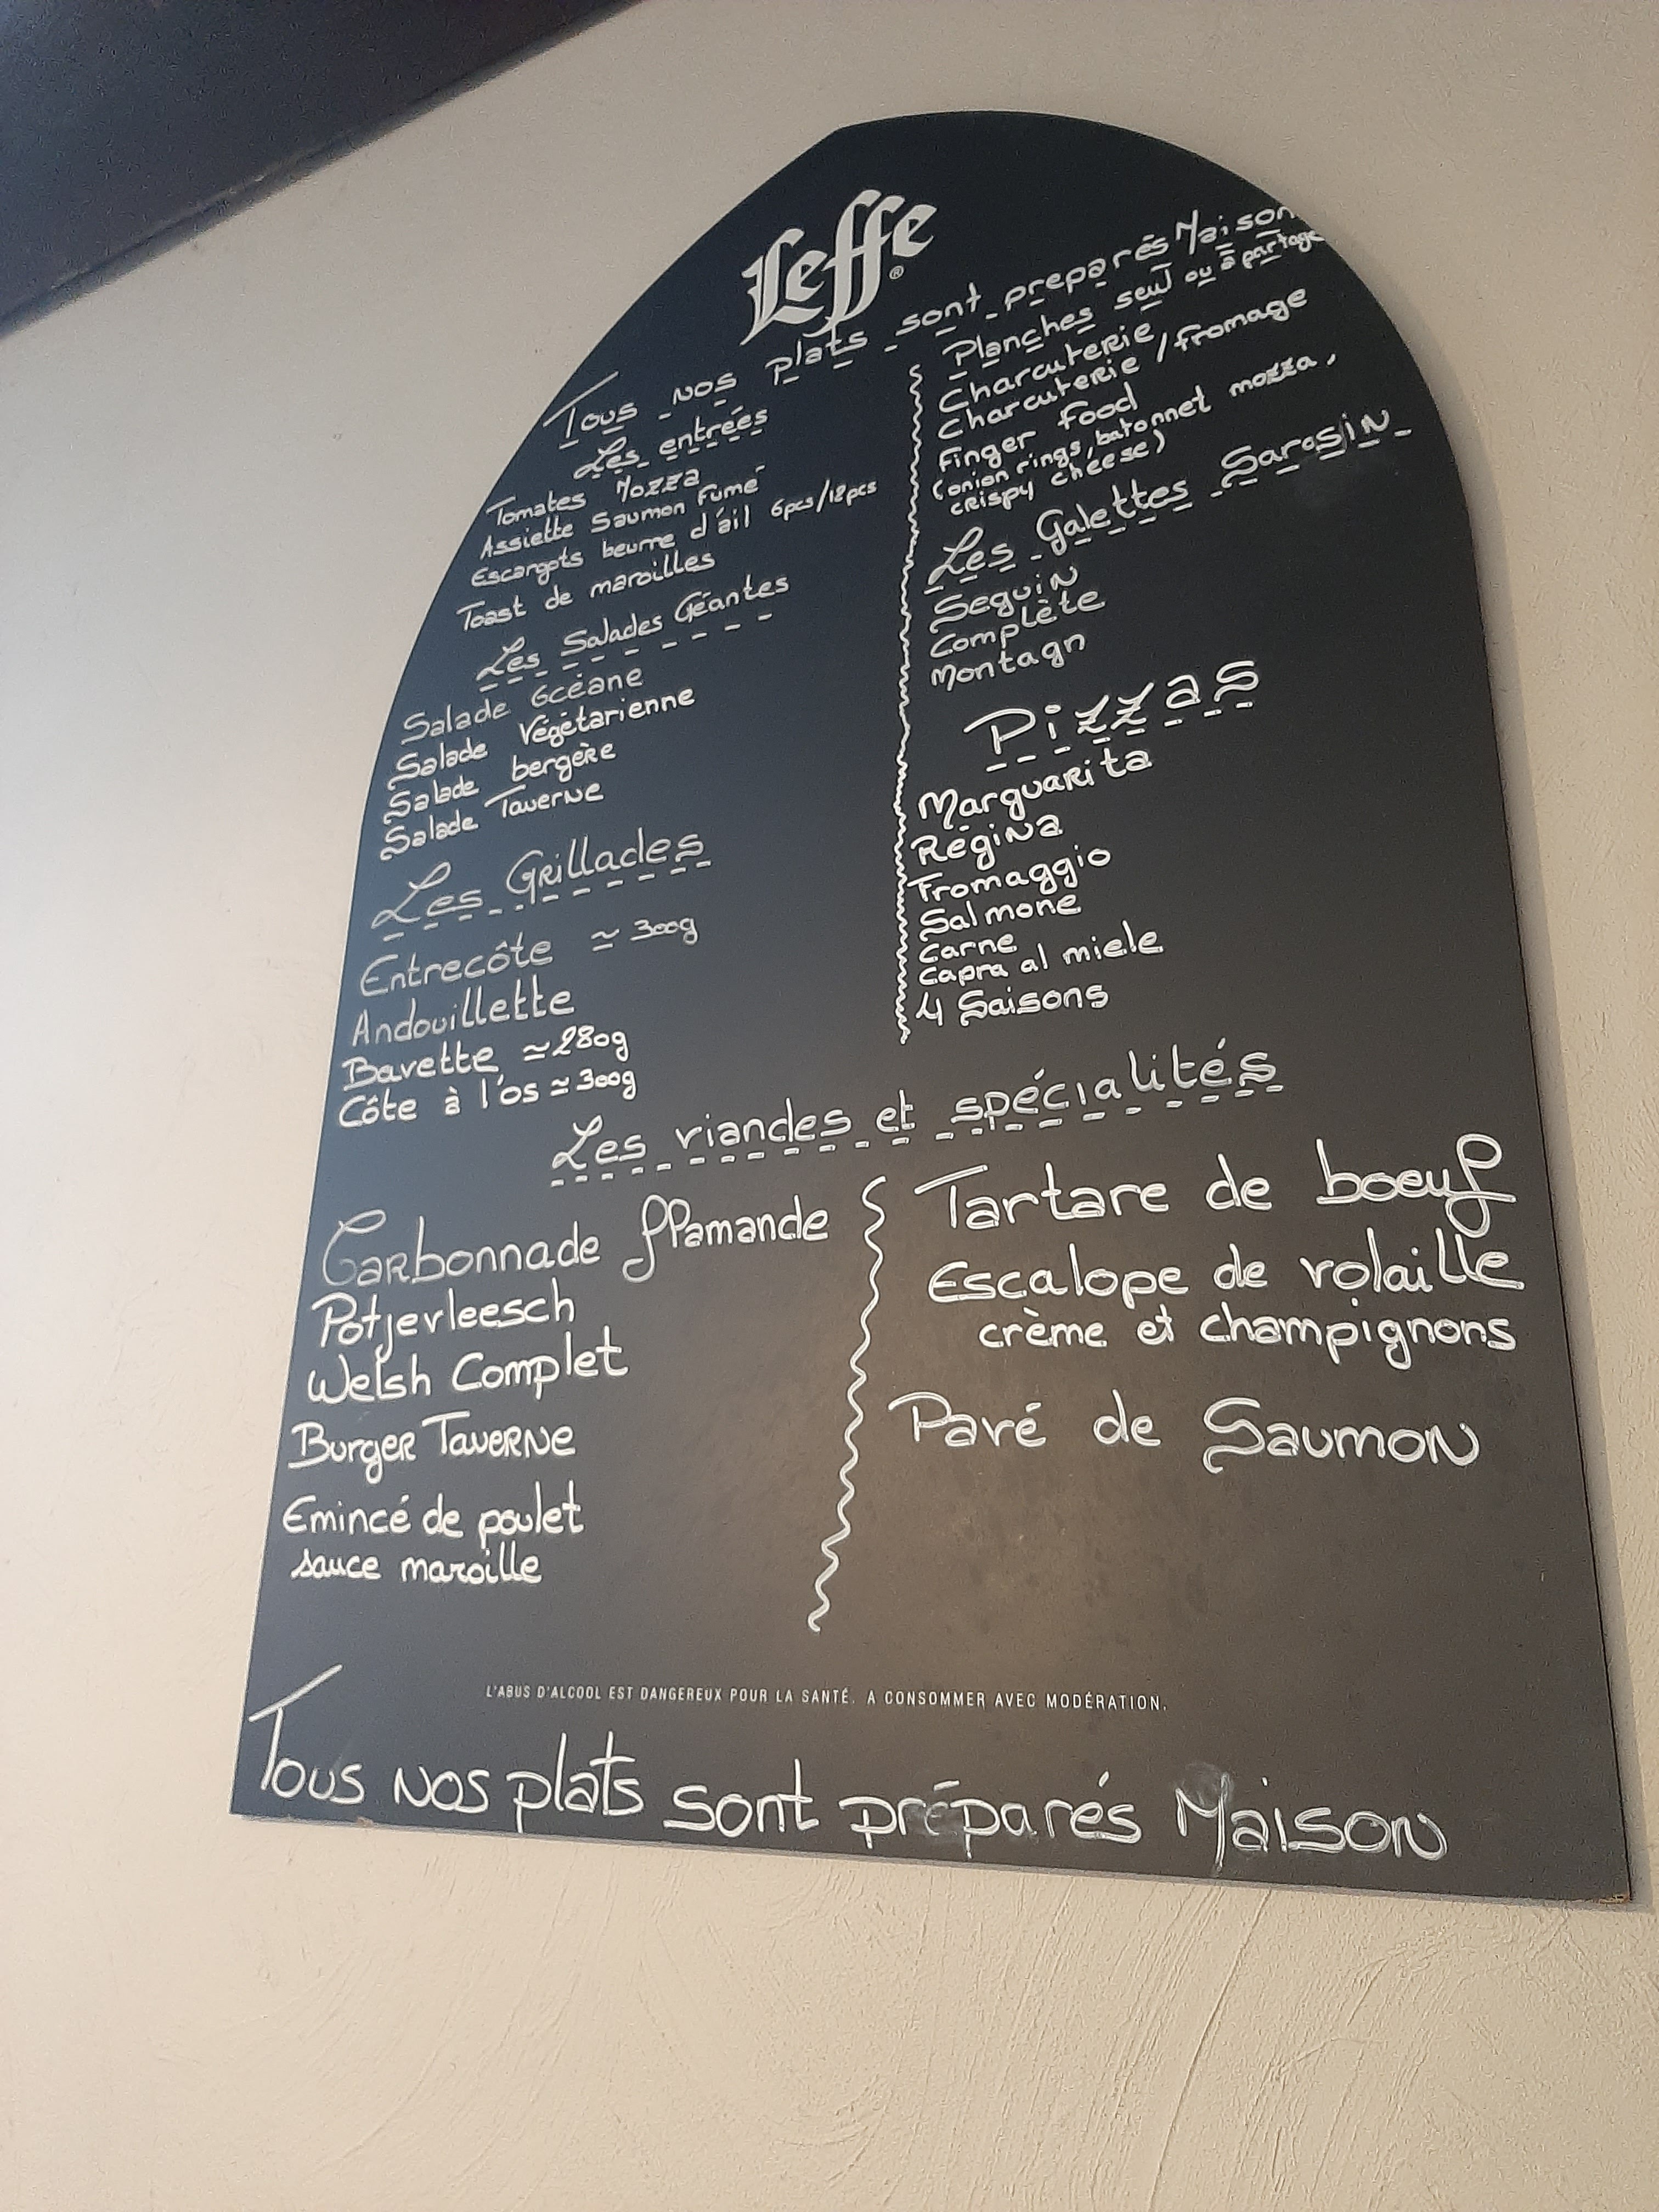 Leffe
Tous nos plats sont preparés Maison
Les entrées
Tomates Mozza
Assiette Saumon Fumé
Escargots beurre d'ail 6pcs/12pcs
Toast de maroilles
Les Salades Géantes
Salade Océane
Salade Végétarienne
Salade bergère
Salade Taverne
Les Grillades
Entrecôte ≃ 300g
Andouillette
Bavette ≃ 280g
Côte à l'os ≃ 300g
Planches seul ou à partage
Charcuterie
Charcuterie / fromage
Finger Food
(onion rings, batonnet mozza,
crispy cheese)
Les Galettes Sarasin
Seguin
Complète
Montagn
Pizzas
Marguarita
Régina
Fromaggio
Salmone
Carne
Capra al miele
4 Saisons
Les viandes et spécialités
Carbonnade flamande
Potjevleesch
Welsh Complet
Burger Taverne
Emincé de poulet
sauce maroille
Tartare de boeuf
Escalope de volaille
crème et champignons
Pavé de Saumon
L'ABUS D'ALCOOL EST DANGEREUX POUR LA SANTÉ. A CONSOMMER AVEC MODÉRATION.
Tous nos plats sont préparés Maison